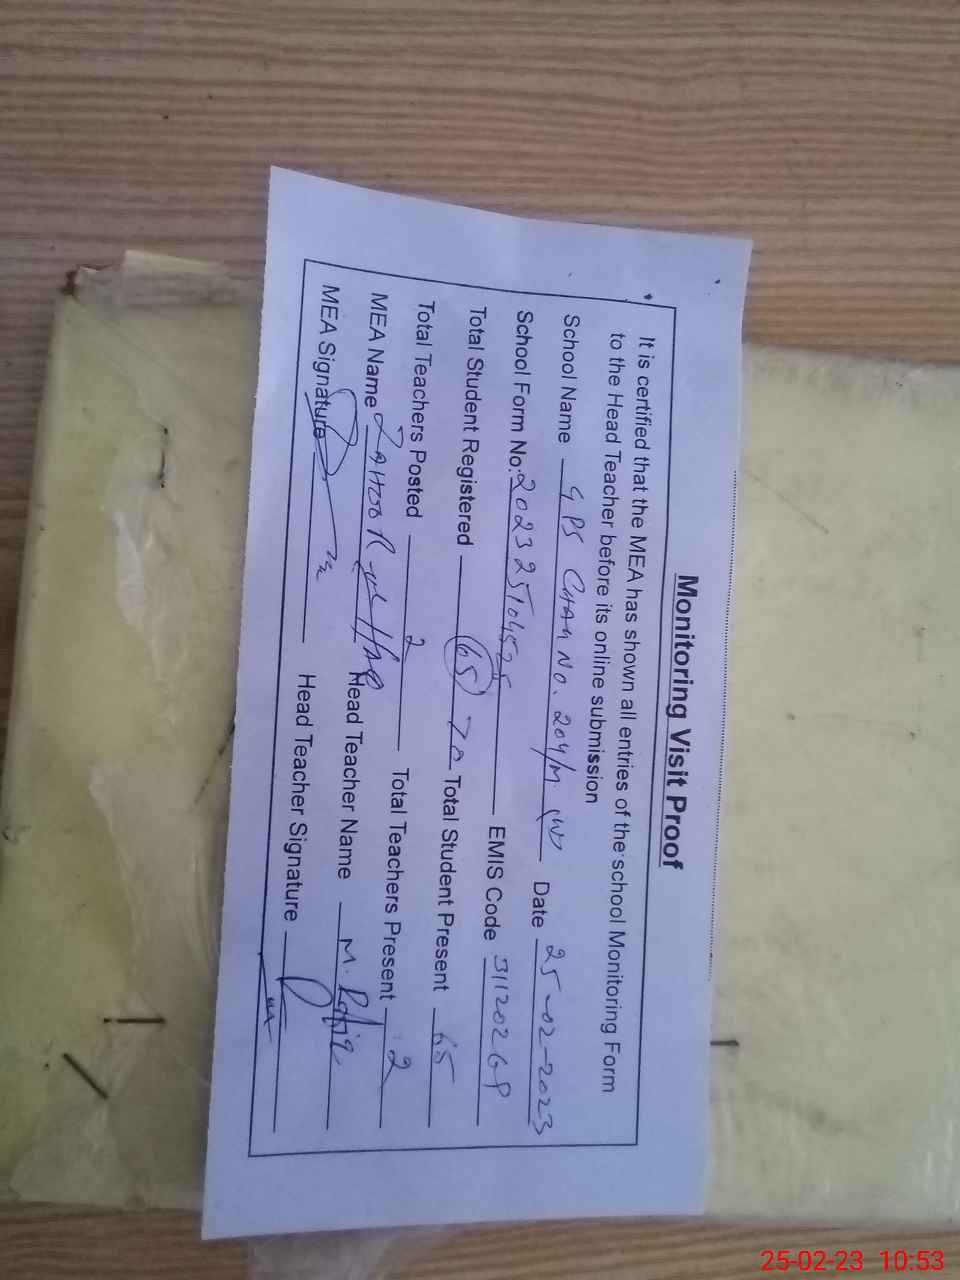 Monitoring Visit Proof
It is certified that the MEA has shown all entries of the school Monitoring Form
to the Head Teacher before its online submission
School Name GPS CHAK No. 204/M (W) Date 25-02-2023
School Form No. 2023 25104525 EMIS Code
Total Student Registered 65 70 Total Student Present 65
Total Teachers Posted 2 Total Teachers Present 2
MEA Name ZAHOOR ul Haq Head Teacher Name M. Rafiq
MEA Signature Head Teacher Signature
25-02-23 10:53